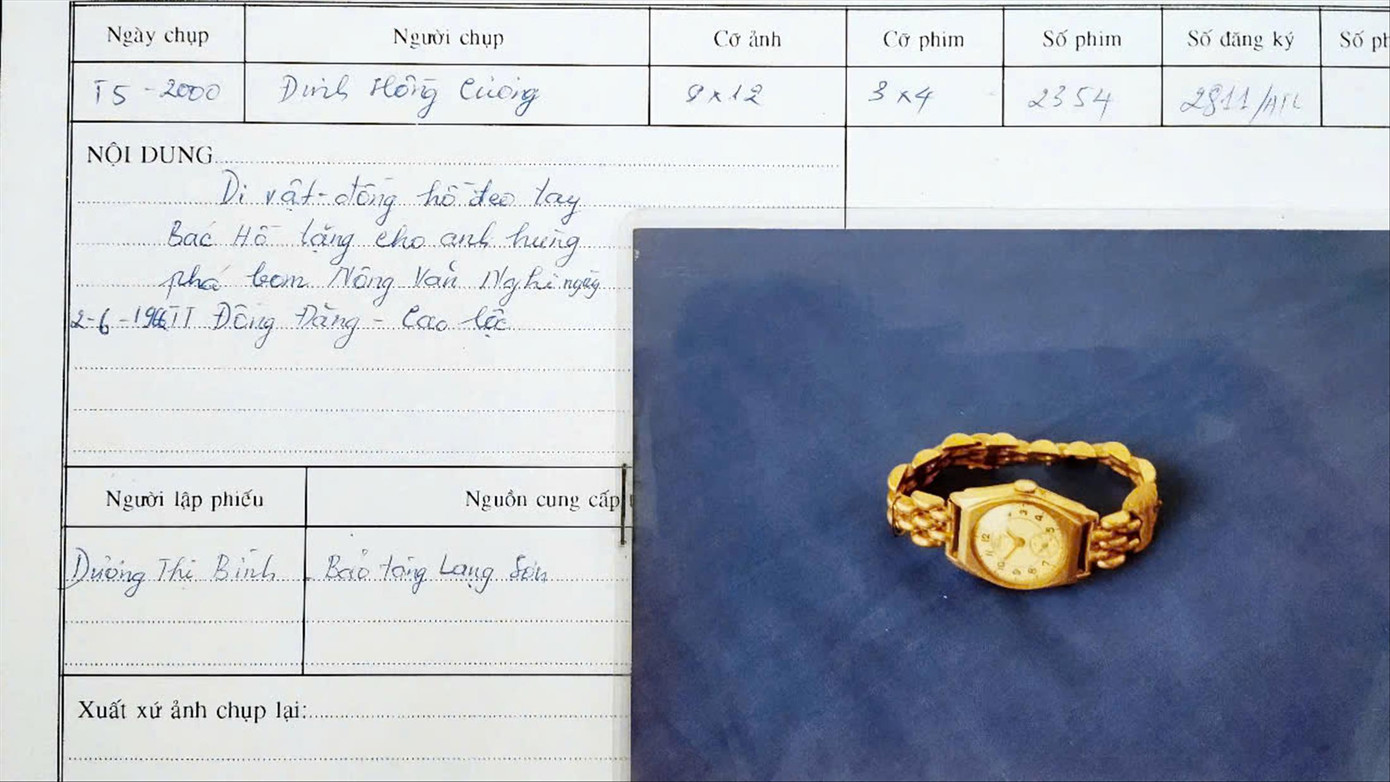 Ngày chụp Người chụp Cỡ ảnh Cỡ phim Số phim Số đăng ký Số
T5 - 2000 Đinh Hồng Cường 9 x 12 3 x 4 2354 2811/
NỘI DUNG
Di vật - đồng hồ đeo tay
Bác Hồ tặng cho anh hùng
phá bom Nông Văn Nghi ngày
2-6-1966 TT Đồng Đăng - Cao Lộc
Người lập phiếu Nguồn cung cấp
Dương Thị Bính Bảo tàng Lạng Sơn
Xuất xứ ảnh chụp lại: